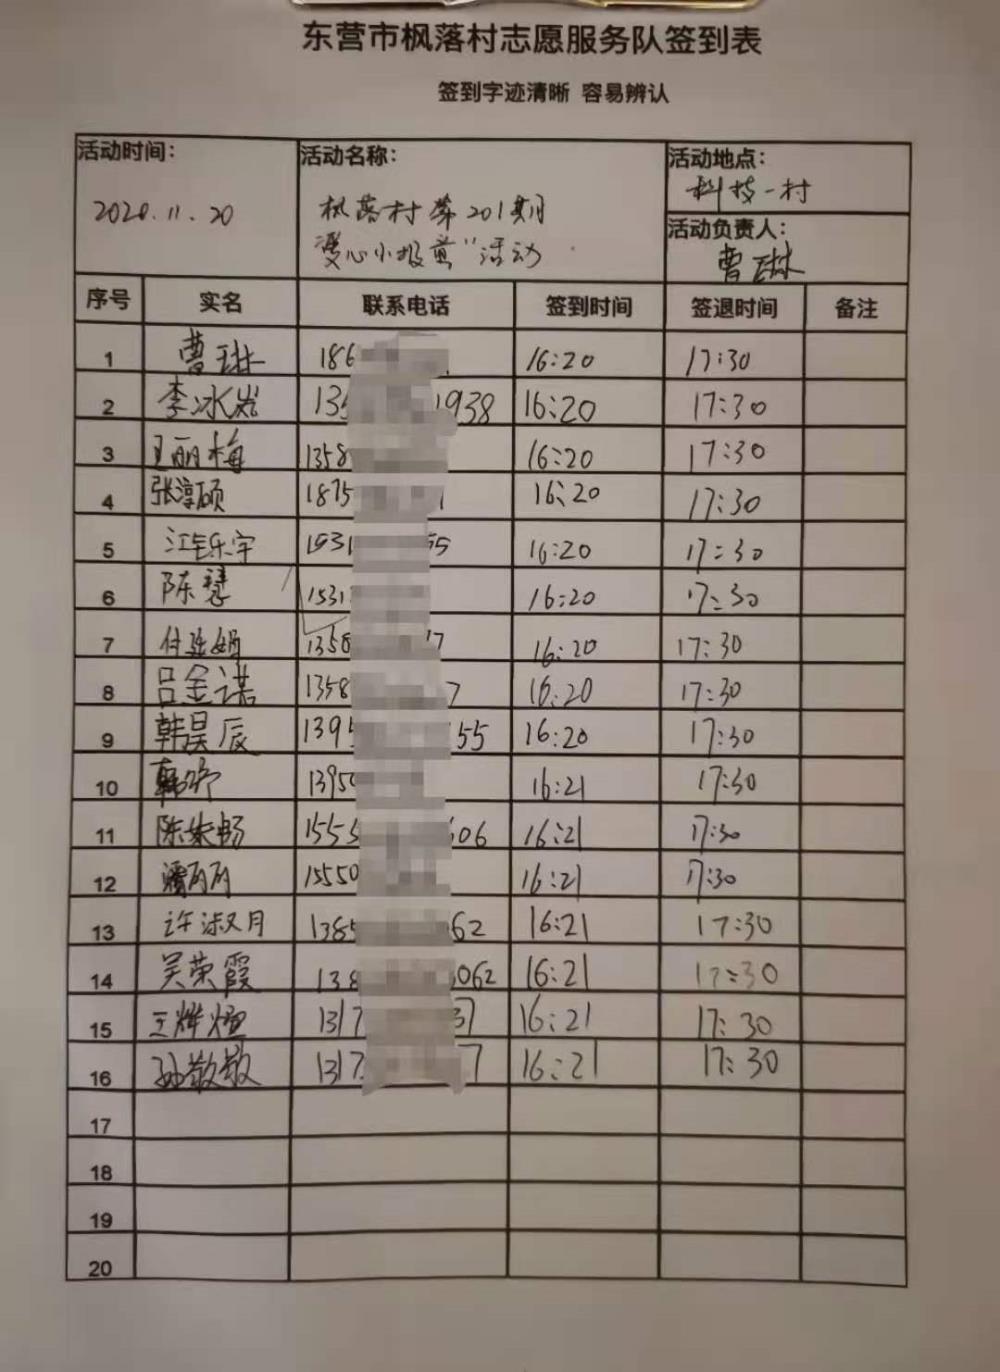 东营市枫落村志愿服务队签到表
签到字迹清晰 容易辨认
活动时间：
2020.11.20
活动名称：
枫落村第201期
爱心小报童"活动
活动地点：
科技一村
活动负责人：
曹琳
序号 实名 联系电话 签到时间 签退时间 备注
1 曹琳 186 16:20 17:30
2 李冰岩 135 1938 16:20 17:30
3 王丽梅 1358 16:20 17:30
4 张淳硕 1875 16:20 17:30
5 江 乐宇 1531 55 16:20 17:30
6 陈慧 1531 16:20 17:30
7 付 娟 1358 17 16:20 17:30
8 吕金诺 1358 7 16:20 17:30
9 韩昊辰 1395 55 16:20 17:30
10 韩 1395 16:21 17:30
11 陈 畅 1555 606 16:21 17:30
12 潘丽丽 15550 16:21 17:30
13 许淑月 1385 62 16:21 17:30
14 吴荣霞 138 062 16:21 17:30
15 王烨煊 1317 37 16:21 17:30
16 孙敬敬 1317 7 16:21 17:30
17
18
19
20